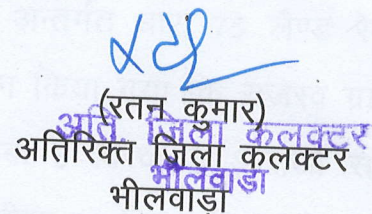 (रतन कुमार)
अति. जिला कलक्टर
अतिरिक्त जिला कलक्टर
भीलवाडा
भीलवाड़ा